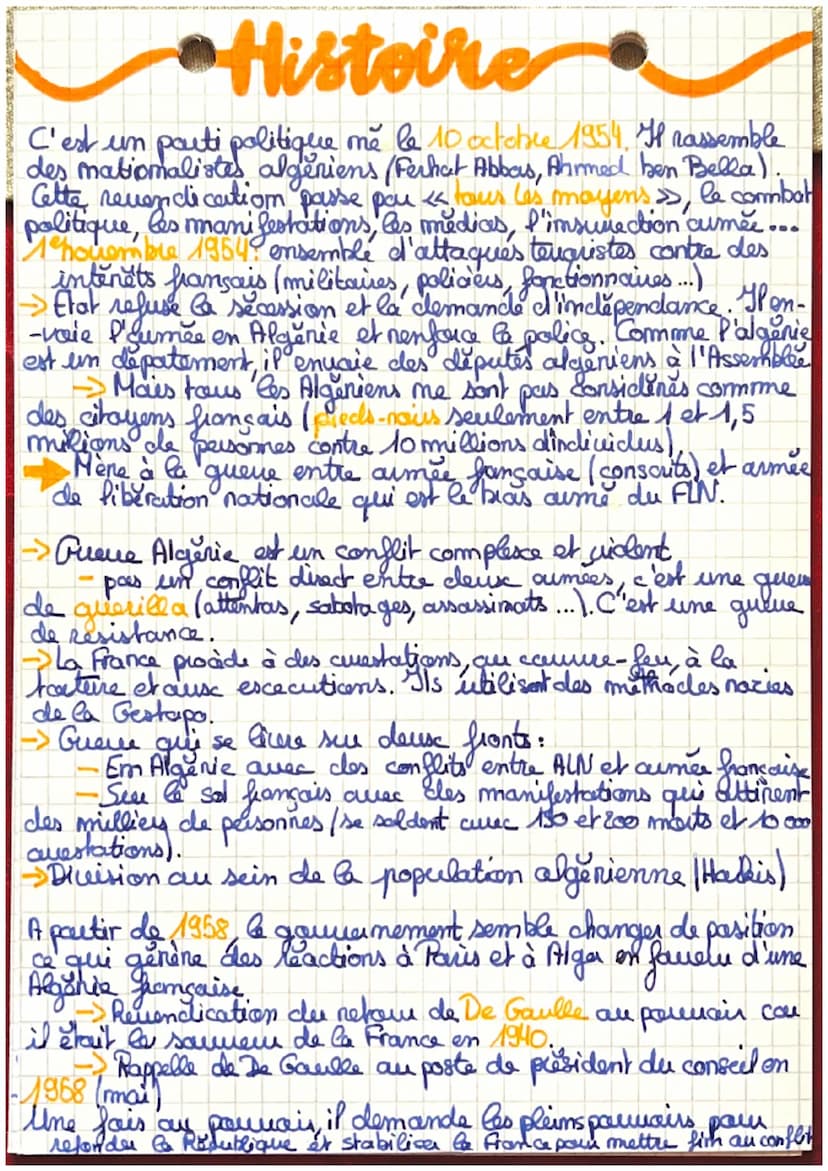 Histoire
C'est un parti politique né le 10 octobre 1954. Il rassemble
des nationalistes algériens (Ferhat Abbas, Ahmed ben Bella).
Cette revendication passe par « tous les moyens », le combat
politique, les manifestations, les médias, l'insurrection armée...
1er novembre 1954: ensemble d'attaques terroristes contre des
intérêts français (militaires, policiers, fonctionnaires ...)
→ Etat refuse la sécession et la demande d'indépendance. Il en-
-voie l'armée en Algérie et renforce la police. Comme l'algérie
est un département, il envoie des députés algériens à l'Assemblée
→ Mais tous les Algériens ne sont pas considérés comme
des citoyens français (pieds-noirs seulement entre 1 et 1,5
millions de personnes contre 10 millions d'individus)
→ Mène à la guerre entre armée française (conscrits) et armée
de libération nationale qui est le bras armé du FLN.
→ Guerre Algérie est un conflit complexe et violent
- pas un conflit direct entre deux armées, c'est une guerre
de guerilla (attentas, sabotages, assassinats ...). C'est une guerre
de résistance.
→ La France procède à des arrestations, au couvre-feu, à la
torture et aux executions. Ils utilisent des méthodes nazies
de la Gestapo.
→ Guerre qui se livre sur deux fronts :
- En Algérie avec des conflits entre ALN et armée française
- Sur le sol français avec des manifestations qui attirent
des milliers de personnes (se soldent avec 150 et 200 morts et 10 000
arrestations).
→ Division au sein de la population algérienne (Harkis)
A partir de 1958, le gouvernement semble changer de position
ce qui génère des réactions à Paris et à Alger en faveur d'une
Algérie française
→ Revendication du retour de De Gaulle au pouvoir car
il était le sauveur de la France en 1940.
→ Rappelle de De Gaulle au poste de président du conseil en
1958 (mai)
Une fois au pouvoir, il demande les pleins pouvoirs pour
refonder la République et stabiliser la France pour mettre fin au conflit